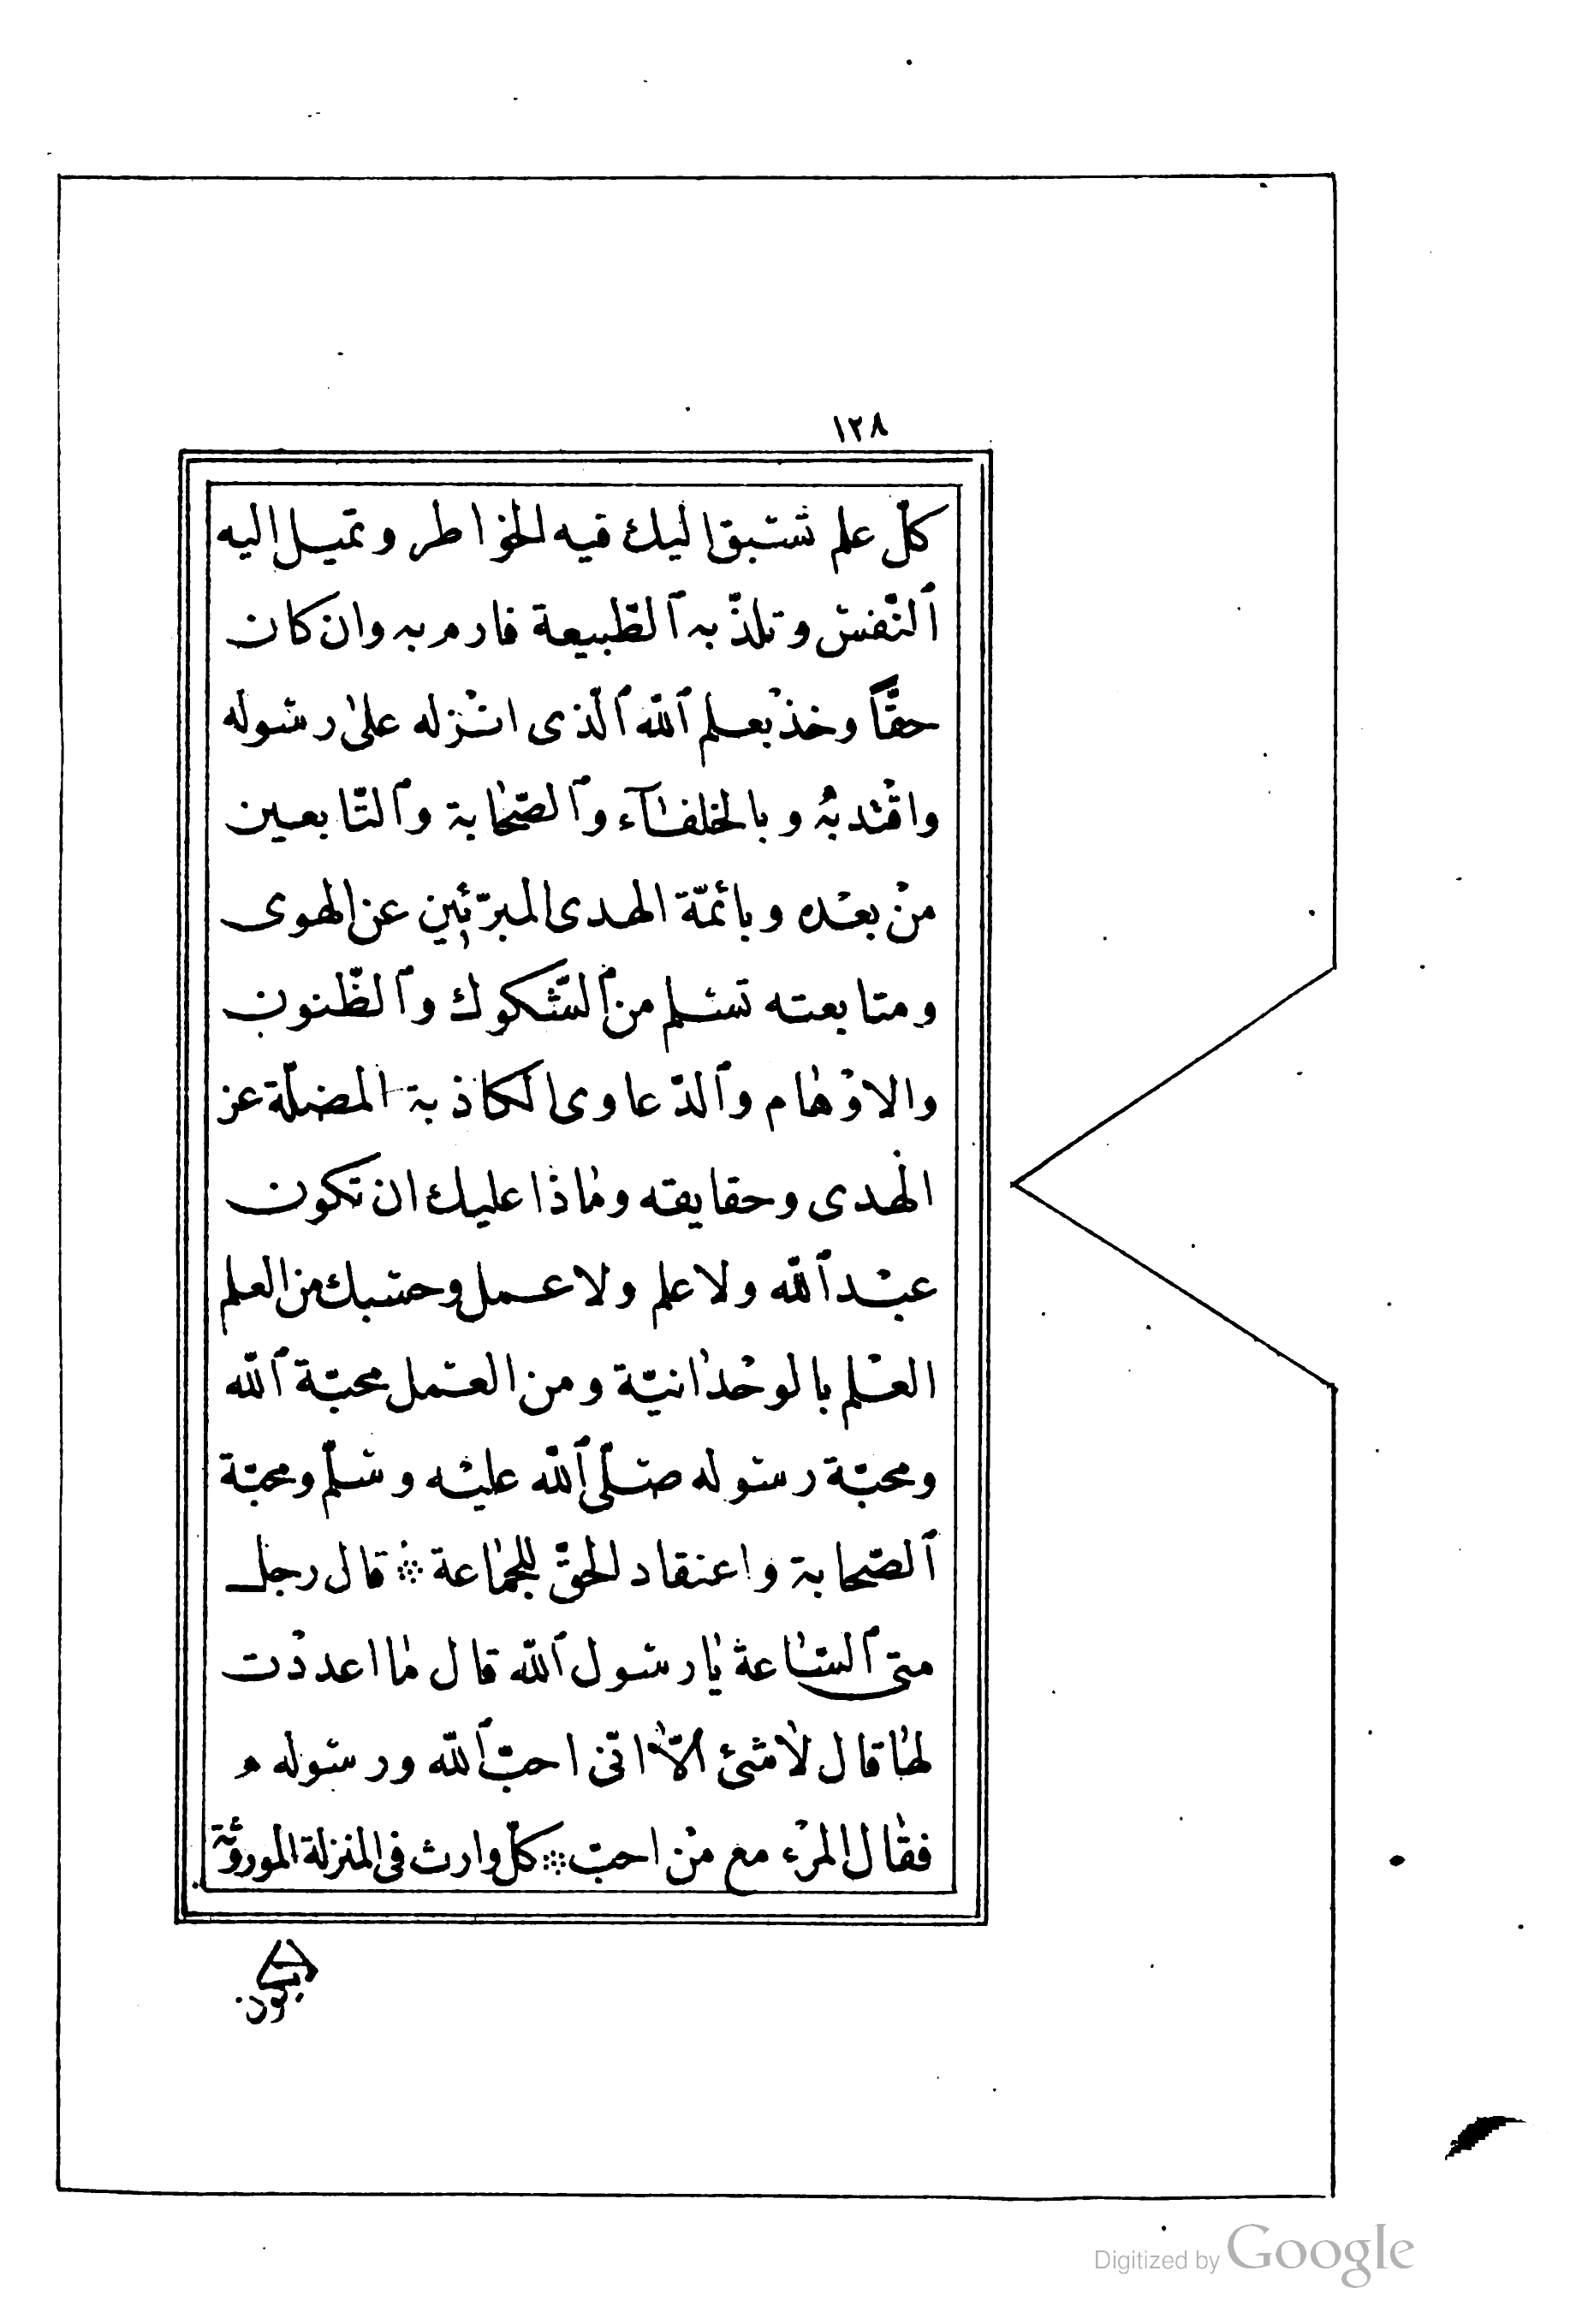 ١٢٨
كلّ علم تسبق اليك فيه الخواطر وتميل اليه
ٱلنّفس وتلذّ به ٱلطّبيعة فارم به وان كان
حقّاً وخذ بعلم ٱللّه ٱلّذى انزله على رسوله
واقتد به وبالخلفآء وٱلصّحابة وٱلتّابعين
من بعده وبائمّة الهدى المبرّئين عن الهوى
ومتابعته تسلم من ٱلشّكوك وٱلظّنون
والاوهام وٱلدّعاوى الكاذبة المضلّة عن
الهدى وحقايقه وماذا عليك ان تكون
عبد ٱللّه ولا علم ولا عمل وحسبك من العلم
العلم بالوحدانيّة ومن العمل محبّة ٱللّه
ومحبّة رسوله صلّى ٱللّه عليه وسلّم ومحبّة
ٱلصّحابة واعتقاد الحقّ للجماعة ⁘ قال رجل
متى ٱلسّاعة يا رسول ٱللّه قال ما اعددت
لها قال لا شئ الّا انّى احبّ ٱللّه ورسوله
فقال المرء مع من احبّ ⁘ كلّ وارث فى المنزلة الموروثة